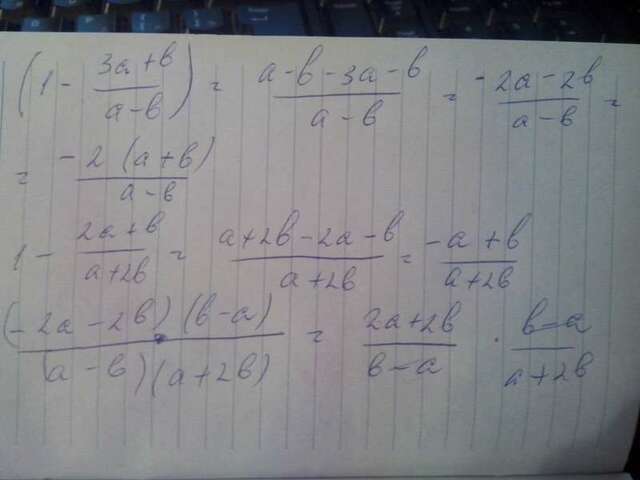 (1 - (3a+b)/(a-b)) = (a-b-3a-b)/(a-b) = (-2a-2b)/(a-b) =
= (-2(a+b))/(a-b)
1 - (2a+b)/(a+2b) = (a+2b-2a-b)/(a+2b) = (-a+b)/(a+2b)
((-2a-2b)(b-a))/((a-b)(a+2b)) = (2a+2b)/(b-a) · (b-a)/(a+2b)